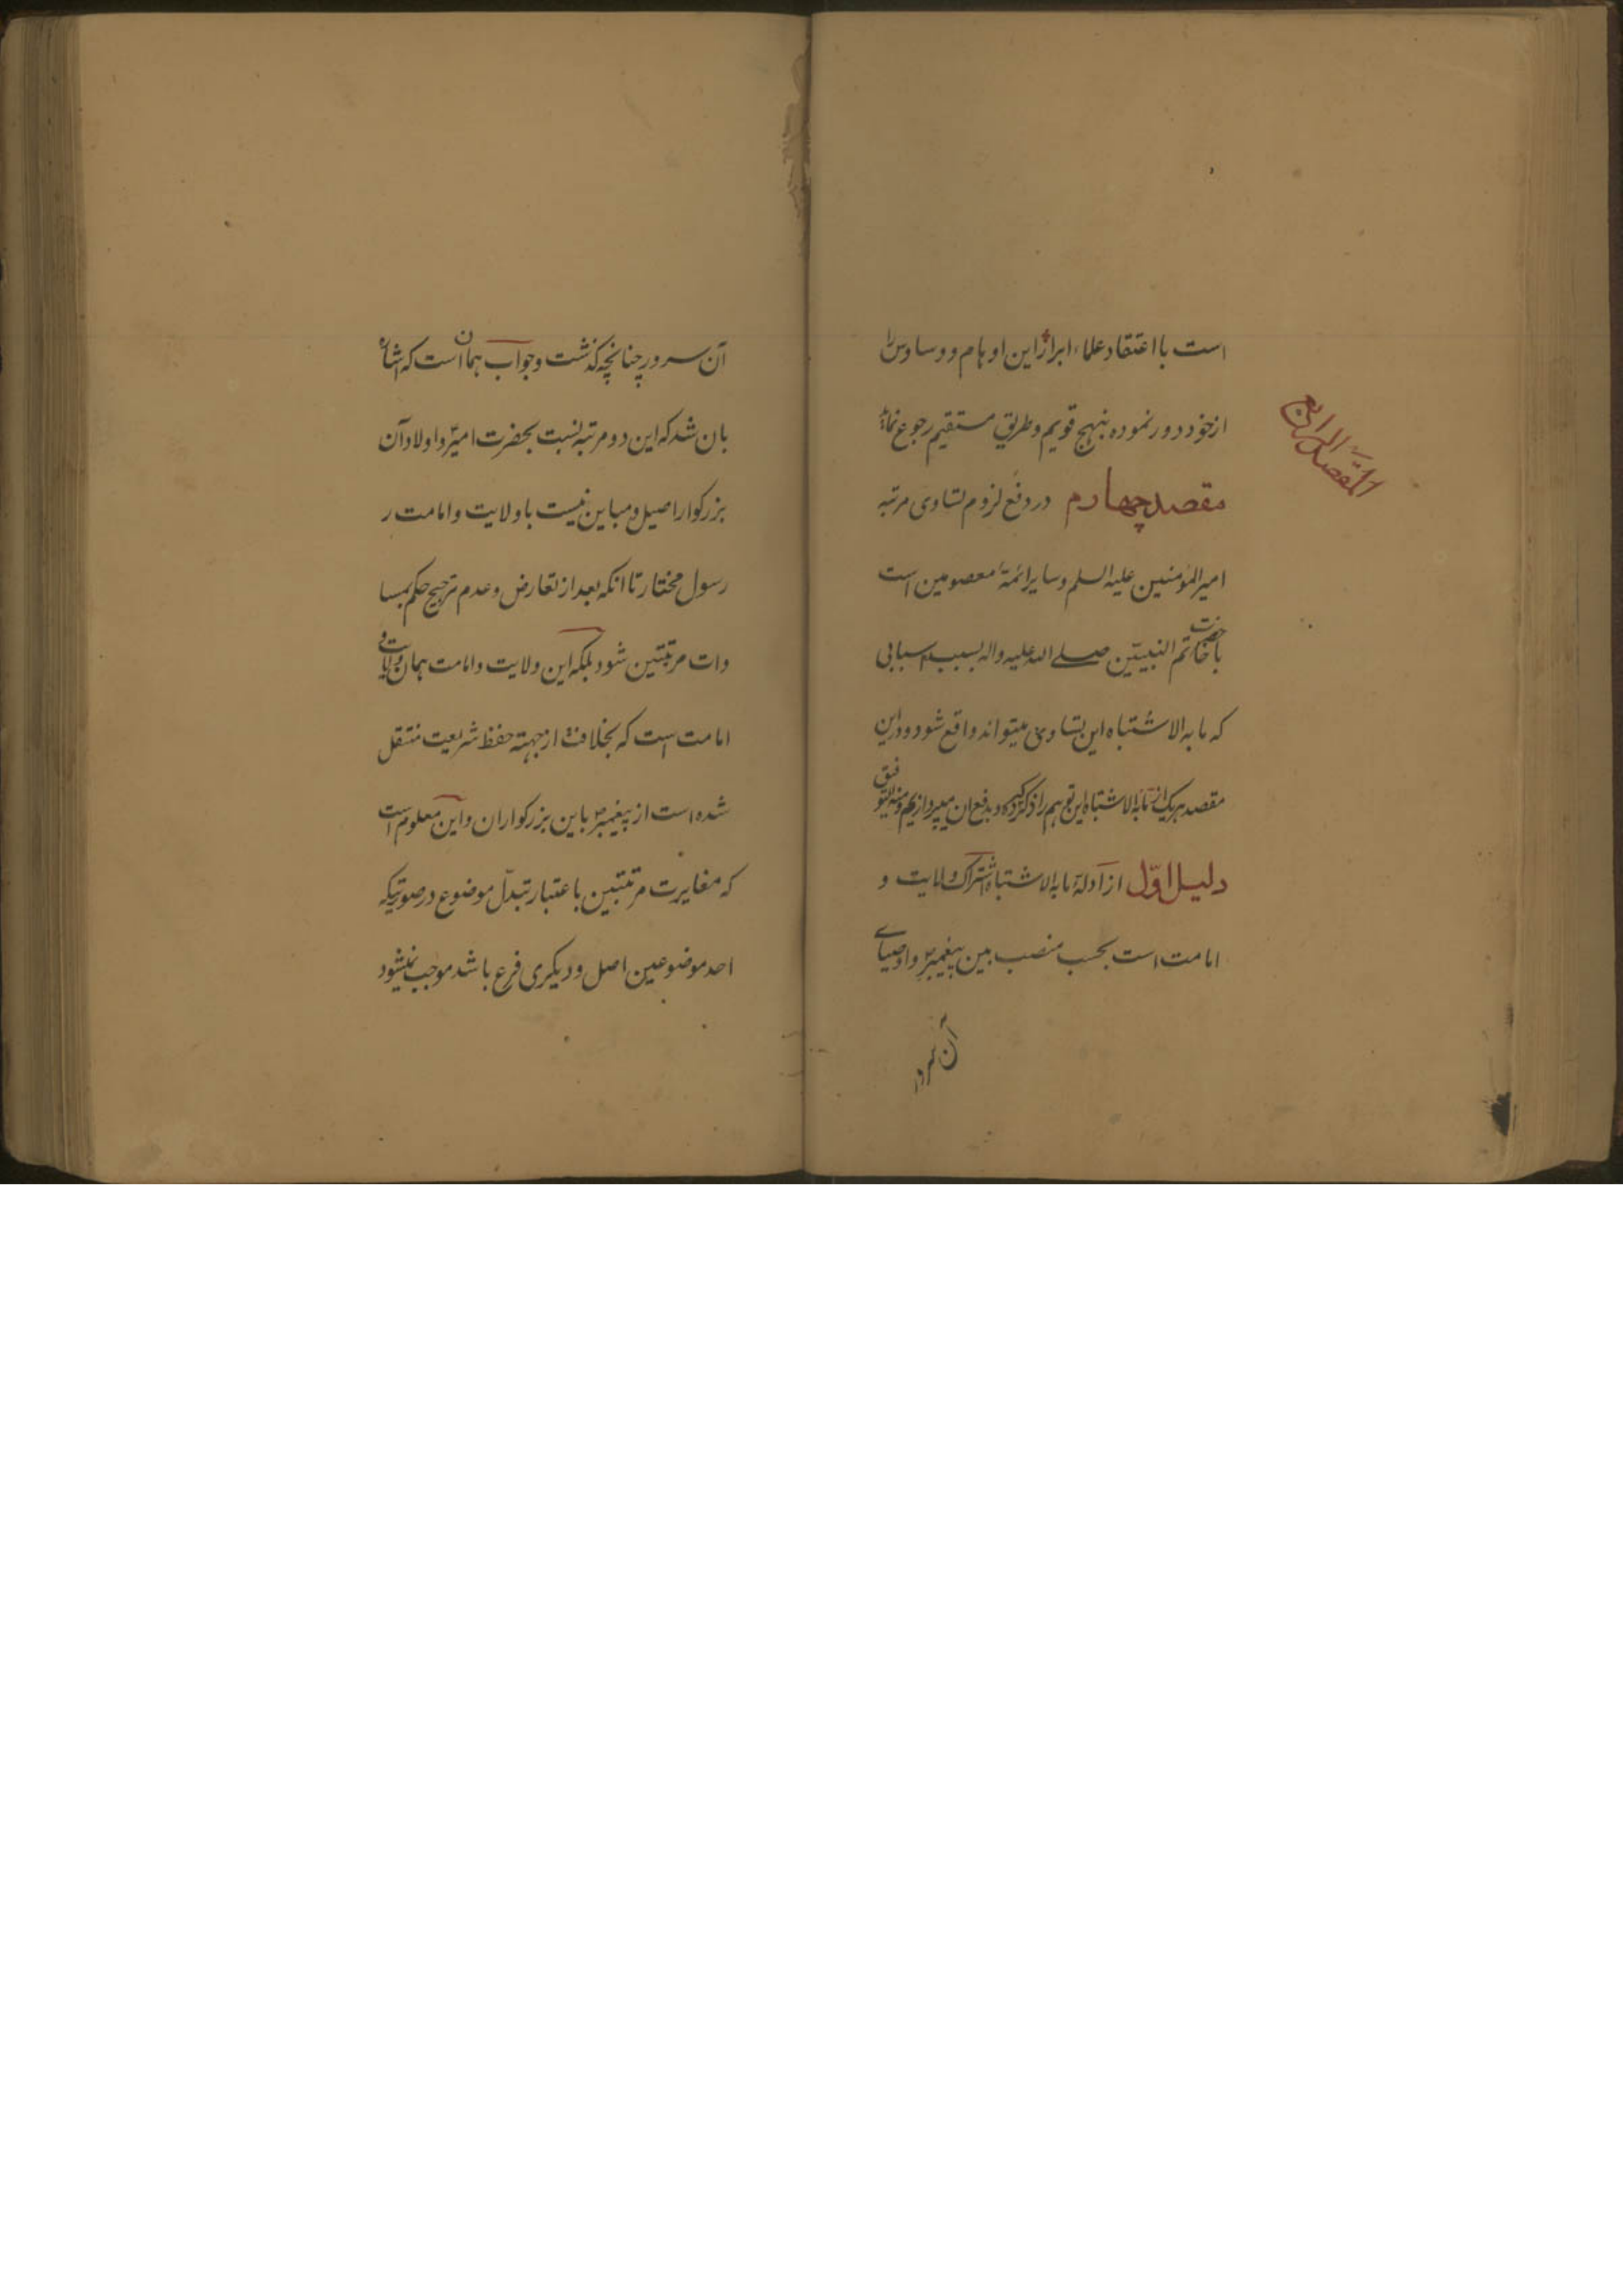 است با اعتقاد علماء ابرار این اوهام و وساوس را
المقصد الرابع
از خود دور نموده بنهج قویم و طریق مستقیم رجوع نماید
مقصد چهارم در دفع لزوم تساوی مرتبه
امیرالمؤمنین علیه السلم و سایر ائمهٔ معصومین است
با حضرت خاتم النبیین صلی الله علیه واله بسبب اسبابی
که ما به الاشتباه این تساوی میتواند واقع شود و در این
مقصد هریک از ما به الاشتباه این توهم را ذکر کرده و بدفع ان میپردازیم و منه التوفیق
دلیل اوّل از ادلهٔ ما به الاشتباه اشتراک ولایت و
امامت است بحسب منصب بین پیغمبر و اوصیای
آن سرور
آن سرور چنانچه کذشت و جواب همان است که اشاره
بان شد که این دو مرتبه نسبت بحضرت امیر و اولاد آن
بزرکوار اصیل و مباین نیست با ولایت و امامت ر
رسول مختار تا انکه بعد از تعارض و عدم ترجیح حکم بمسا
وات مرتبتین شود بلکه این ولایت و امامت همان ولایت و
امامت است که بخلافت از جهته حفظ شریعت منتقل
شده است از پیغمبر باین بزرکواران و این معلوم است
که مغایرت مرتبتین باعتبار تبدّل موضوع در صورتیکه
احد موضوعین اصل و دیکری فرع باشد موجب نمیشود